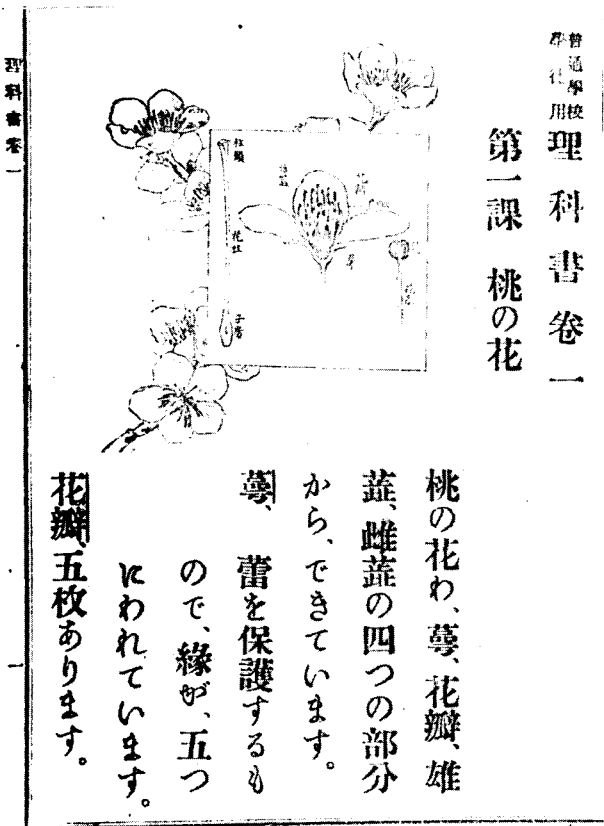 普通學校
學徒用
理科書卷一
第一課　桃の花
柱頭
花柱
子房
萼
桃の花わ、萼、花瓣、雄
蕋、雌蕋の四つの部分
から、できています。
萼、　蕾を保護するも
ので、緣が、五つ
にわれています。
花瓣、五枚あります。
理科書卷一
一